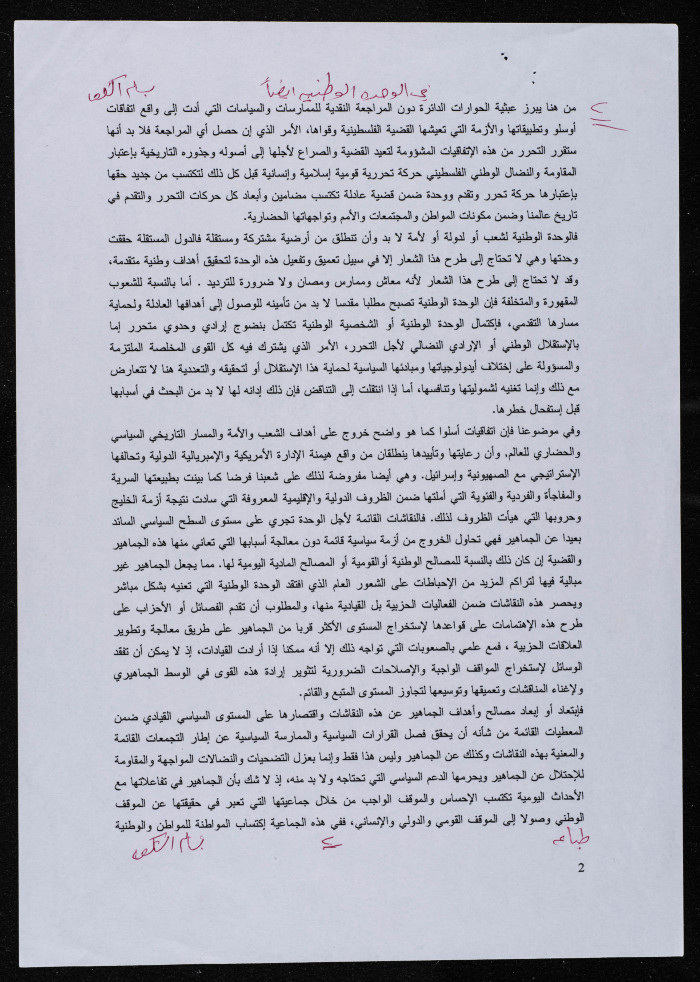 في الوحدة الوطنية ايضاً
٢
من هنا يبرز عبثية الحوارات الدائرة دون المراجعة النقدية للممارسات والسياسات التي أدت إلى واقع اتفاقات
أوسلو وتطبيقاتها والأزمة التي تعيشها القضية الفلسطينية وقواها، الأمر الذي إن حصل أي المراجعة فلا بد أنها
ستقرر التحرر من هذه الإتفاقيات المشؤومة لتعيد القضية والصراع لأجلها إلى أصوله وجذوره التاريخية بإعتبار
المقاومة والنضال الوطني الفلسطيني حركة تحررية قومية إسلامية وإنسانية قبل كل ذلك لتكتسب من جديد حقها
بإعتبارها حركة تحرر وتقدم ووحدة ضمن قضية عادلة تكتسب مضامين وأبعاد كل حركات التحرر والتقدم في
تاريخ عالمنا وضمن مكونات المواطن والمجتمعات والأمم وتواجهاتها الحضارية.
فالوحدة الوطنية لشعب أو لدولة أو لأمة لا بد وأن تنطلق من أرضية مشتركة ومستقلة فالدول المستقلة حققت
وحدتها وهي لا تحتاج إلى طرح هذا الشعار إلا في سبيل تعميق وتفعيل هذه الوحدة لتحقيق أهداف وطنية متقدمة،
وقد لا تحتاج إلى طرح هذا الشعار لأنه معاش وممارس ومصان ولا ضرورة للترديد . أما بالنسبة للشعوب
المقهورة والمتخلفة فإن الوحدة الوطنية تصبح مطلبا مقدسا لا بد من تأمينه للوصول إلى أهدافها العادلة ولحماية
مسارها التقدمي، فإكتمال الوحدة الوطنية أو الشخصية الوطنية تكتمل بنضوج إرادي وحدوي متحرر إما
بالإستقلال الوطني أو الإرادي النضالي لأجل التحرر، الأمر الذي يشترك فيه كل القوى المخلصة الملتزمة
والمسؤولة على إختلاف أيدولوجياتها ومبادئها السياسية لحماية هذا الإستقلال أو لتحقيقه والتعددية هنا لا تتعارض
مع ذلك وإنما تغنيه لشموليتها وتنافسها، أما إذا انتقلت إلى التناقض فإن ذلك إدانه لها لا بد من البحث في أسبابها
قبل إستفحال خطرها.
وفي موضوعنا فإن اتفاقيات أسلوا كما هو واضح خروج على أهداف الشعب والأمة والمسار التاريخي السياسي
والحضاري للعالم. وأن رعايتها وتأييدها ينطلقان من واقع هيمنة الإدارة الأمريكية والإمبريالية الدولية وتحالفها
الإستراتيجي مع الصهيونية وإسرائيل. وهي أيضا مفروضة لذلك على شعبنا فرضا كما بينت بطبيعتها السرية
والمفاجأة والفردية والفئوية التي أملتها ضمن الظروف الدولية والإقليمية المعروفة التي سادت نتيجة أزمة الخليج
وحروبها التي هيأت الظروف لذلك. فالنقاشات القائمة لأجل الوحدة تجري على مستوى السطح السياسي السائد
بعيدا عن الجماهير فهي تحاول الخروج من أزمة سياسية قائمة دون معالجة أسبابها التي تعاني منها هذه الجماهير
والقضية إن كان ذلك بالنسبة للمصالح الوطنية أوالقومية أو المصالح المادية اليومية لها. مما يجعل الجماهير غير
مبالية فيها لتراكم المزيد من الإحباطات على الشعور العام الذي افتقد الوحدة الوطنية التي تعنيه بشكل مباشر
ويحصر هذه النقاشات ضمن الفعاليات الحزبية بل القيادية منها، والمطلوب أن تقدم الفصائل أو الأحزاب على
طرح هذه الإهتمامات على قواعدها لإستخراج المستوى الأكثر قربا من الجماهير على طريق معالجة وتطوير
العلاقات الحزبية ، فمع علمي بالصعوبات التي تواجه ذلك إلا أنه ممكنا إذا أرادت القيادات، إذ لا يمكن أن تفقد
الوسائل لإستخراج المواقف الواجبة والإصلاحات الضرورية لتثوير إرادة هذه القوى في الوسط الجماهيري
ولإغناء المناقشات وتعميقها وتوسيعها لتجاوز المستوى المتبع والقائم.
فإبتعاد أو إبعاد مصالح وأهداف الجماهير عن هذه النقاشات واقتصارها على المستوى السياسي القيادي ضمن
المعطيات القائمة من شأنه أن يحقق فصل القرارات السياسية والممارسة السياسية عن إطار التجمعات القائمة
والمعنية بهذه النقاشات وكذلك عن الجماهير وليس هذا فقط وإنما بعزل التضحيات والنضالات المواجهة والمقاومة
للإحتلال عن الجماهير ويحرمها الدعم السياسي التي تحتاجه ولا بد منه، إذ لا شك بأن الجماهير في تفاعلاتها مع
الأحداث اليومية تكتسب الإحساس والموقف الواجب من خلال جماعيتها التي تعبر في حقيقتها عن الموقف
الوطني وصولا إلى الموقف القومي والدولي والإنساني، ففي هذه الجماعية إكتساب المواطنة للمواطن والوطنية
طباعه
٢
2